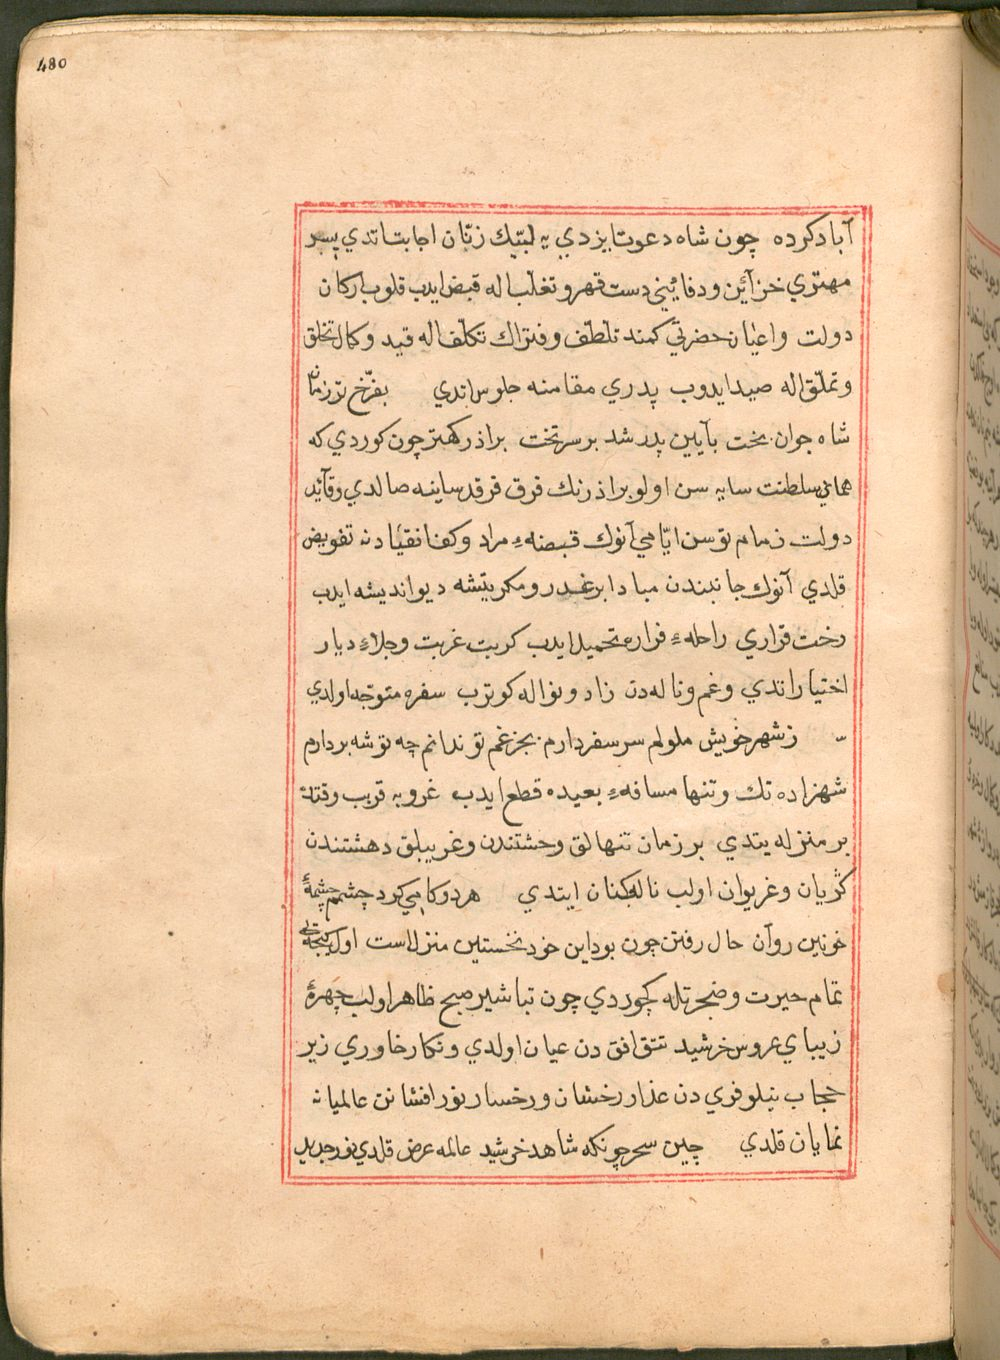 480
آباد کرده چون شاه دعوت ایزدي یه لبّیك زنّان اجابت اتدي پسر
مهتري خزآئن و دفائني دست قهر و تغلّب اله قبض ایدب قلوب ارکان
دولت و اعیان حضرتي کمند تلطّف و فتراك تکلّف اله قید و کمال تخلق
و تملّق اله صید ایدوب پدري مقامنه جلوس اتدي بفرّخ ترزمان
شاه جوان بخت بآیین پدر شد بر سر تخت براذر کهتر چون کوردي که
همای سلطنت سایه سن اولو براذرنك فرق فرقد ساینه صالدي و قآئد
دولت زمام توسن ایّامي آنوك قبضهء مراد و کف انقیادنه تفویض
قلدي آنوك جانبندن مبادا بر غدر و مکر پیشه دیو اندیشه ایدب
رخت قراري راحلهء فراره تحمیل ایدب کربت غربت و جلاء دیار
اختیار اتدي و غم و ناله دن زاد و نواله کوترب سفره متوجّه اولدي
ز شهر خویش ملولم سر سفر دارم بجز غم تو ندانم چه توشه بردارم
شهزاده تك و تنها مسافهء بعیده قطع ایدب غروبه قریب وقتده
بر منزله یتدي بر زمان تنهالق وحشتندن و غریبلق دهشتندن
کریان و غریوان اولب ناله کنان ایتدي هر دو کامي کرد چشمم چشمهٔ
خونین روآن حال رفتن چون بود این خود نخستین منزلست اول کیجه
تمام حیرت و ضجرتله کچوردي چون تباشیر صبح ظاهر اولب چهرهٔ
زیباي عروس خرشید تتق افق دن عیان اولدي و نکار خاوري زیر
حجاب نیلوفري دن عذار رخشان و رخسار نور افشانن عالمیانه
نمایان قلدي چین سحر چونکه شاهد خرشید عالمه عرض قلدي نور جدید